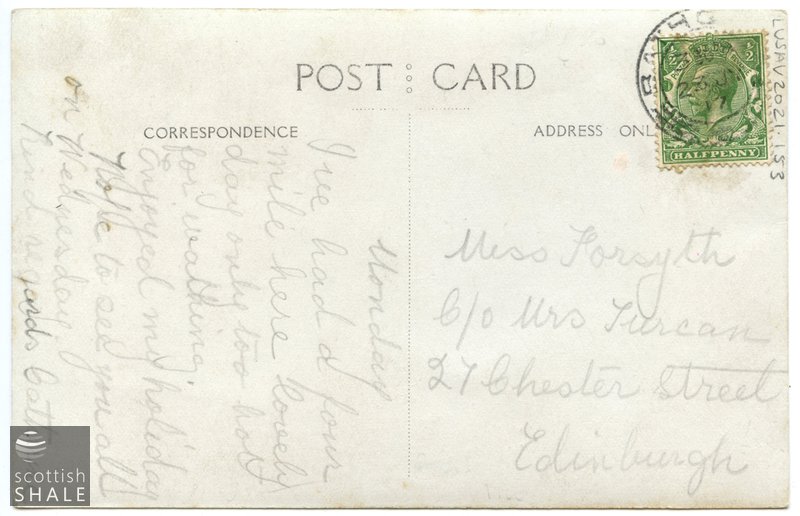 POST CARD
CORRESPONDENCE
ADDRESS ONL
Monday
I've had a four
mile here lovely
day only too hot
for walking
enjoyed my holiday
Hope to see you all
on Wednesday
Kind regards
Miss Forsyth
C/o Mrs Turcan
27 Chester Street
Edinburgh
1/2 1/2
HALFPENNY
LVSAV2021.153
scottish
SHALE